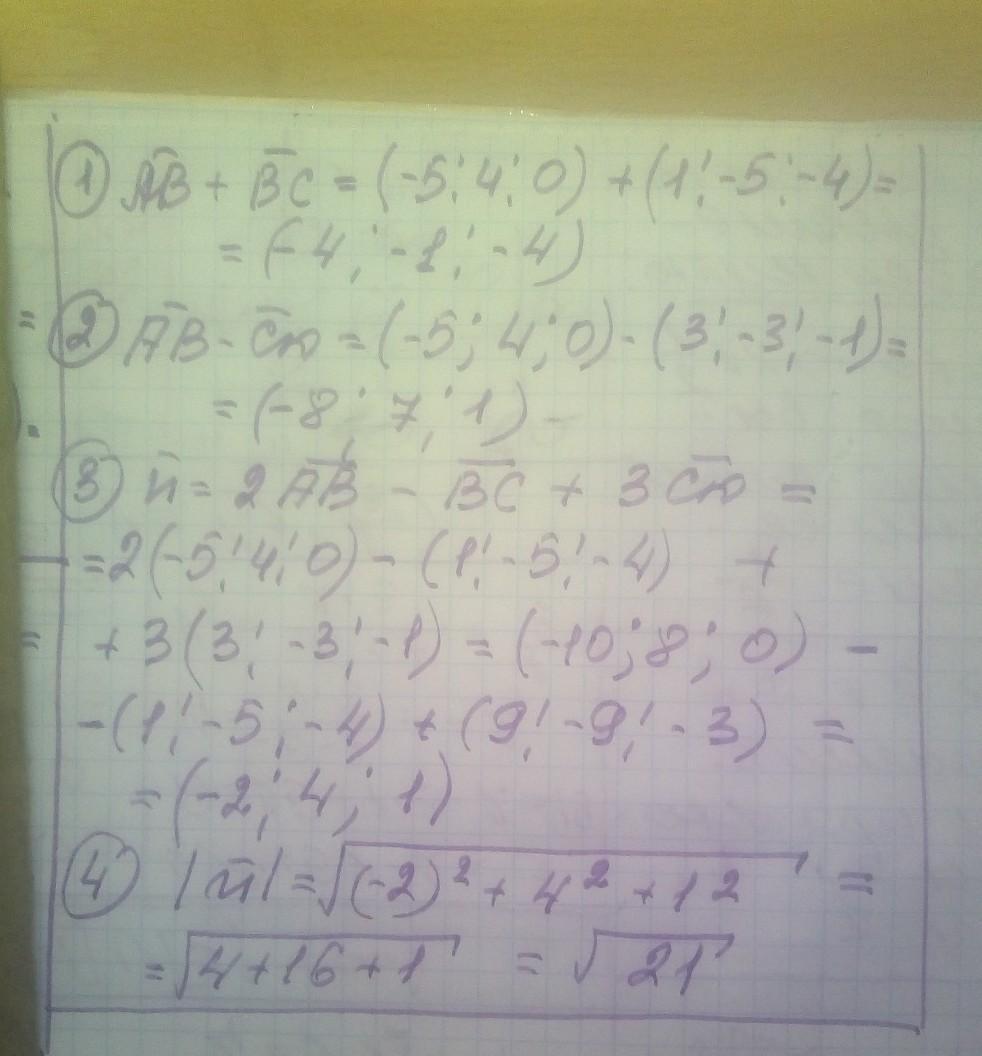 ① A̅B̅ + B̅C̅ = (-5; 4; 0) + (1; -5; -4) =
= (-4; -1; -4)
② A̅B̅ - C̅D̅ = (-5; 4; 0) - (3; -3; -1) =
= (-8; 7; 1)
③ n̅ = 2 A̅B̅ - B̅C̅ + 3 C̅D̅ =
= 2(-5; 4; 0) - (1; -5; -4) +
+ 3(3; -3; -1) = (-10; 8; 0) -
- (1; -5; -4) + (9; -9; -3) =
= (-2; 4; 1)
④ |n̅| = √((-2)² + 4² + 1²) =
= √(4+16+1) = √21